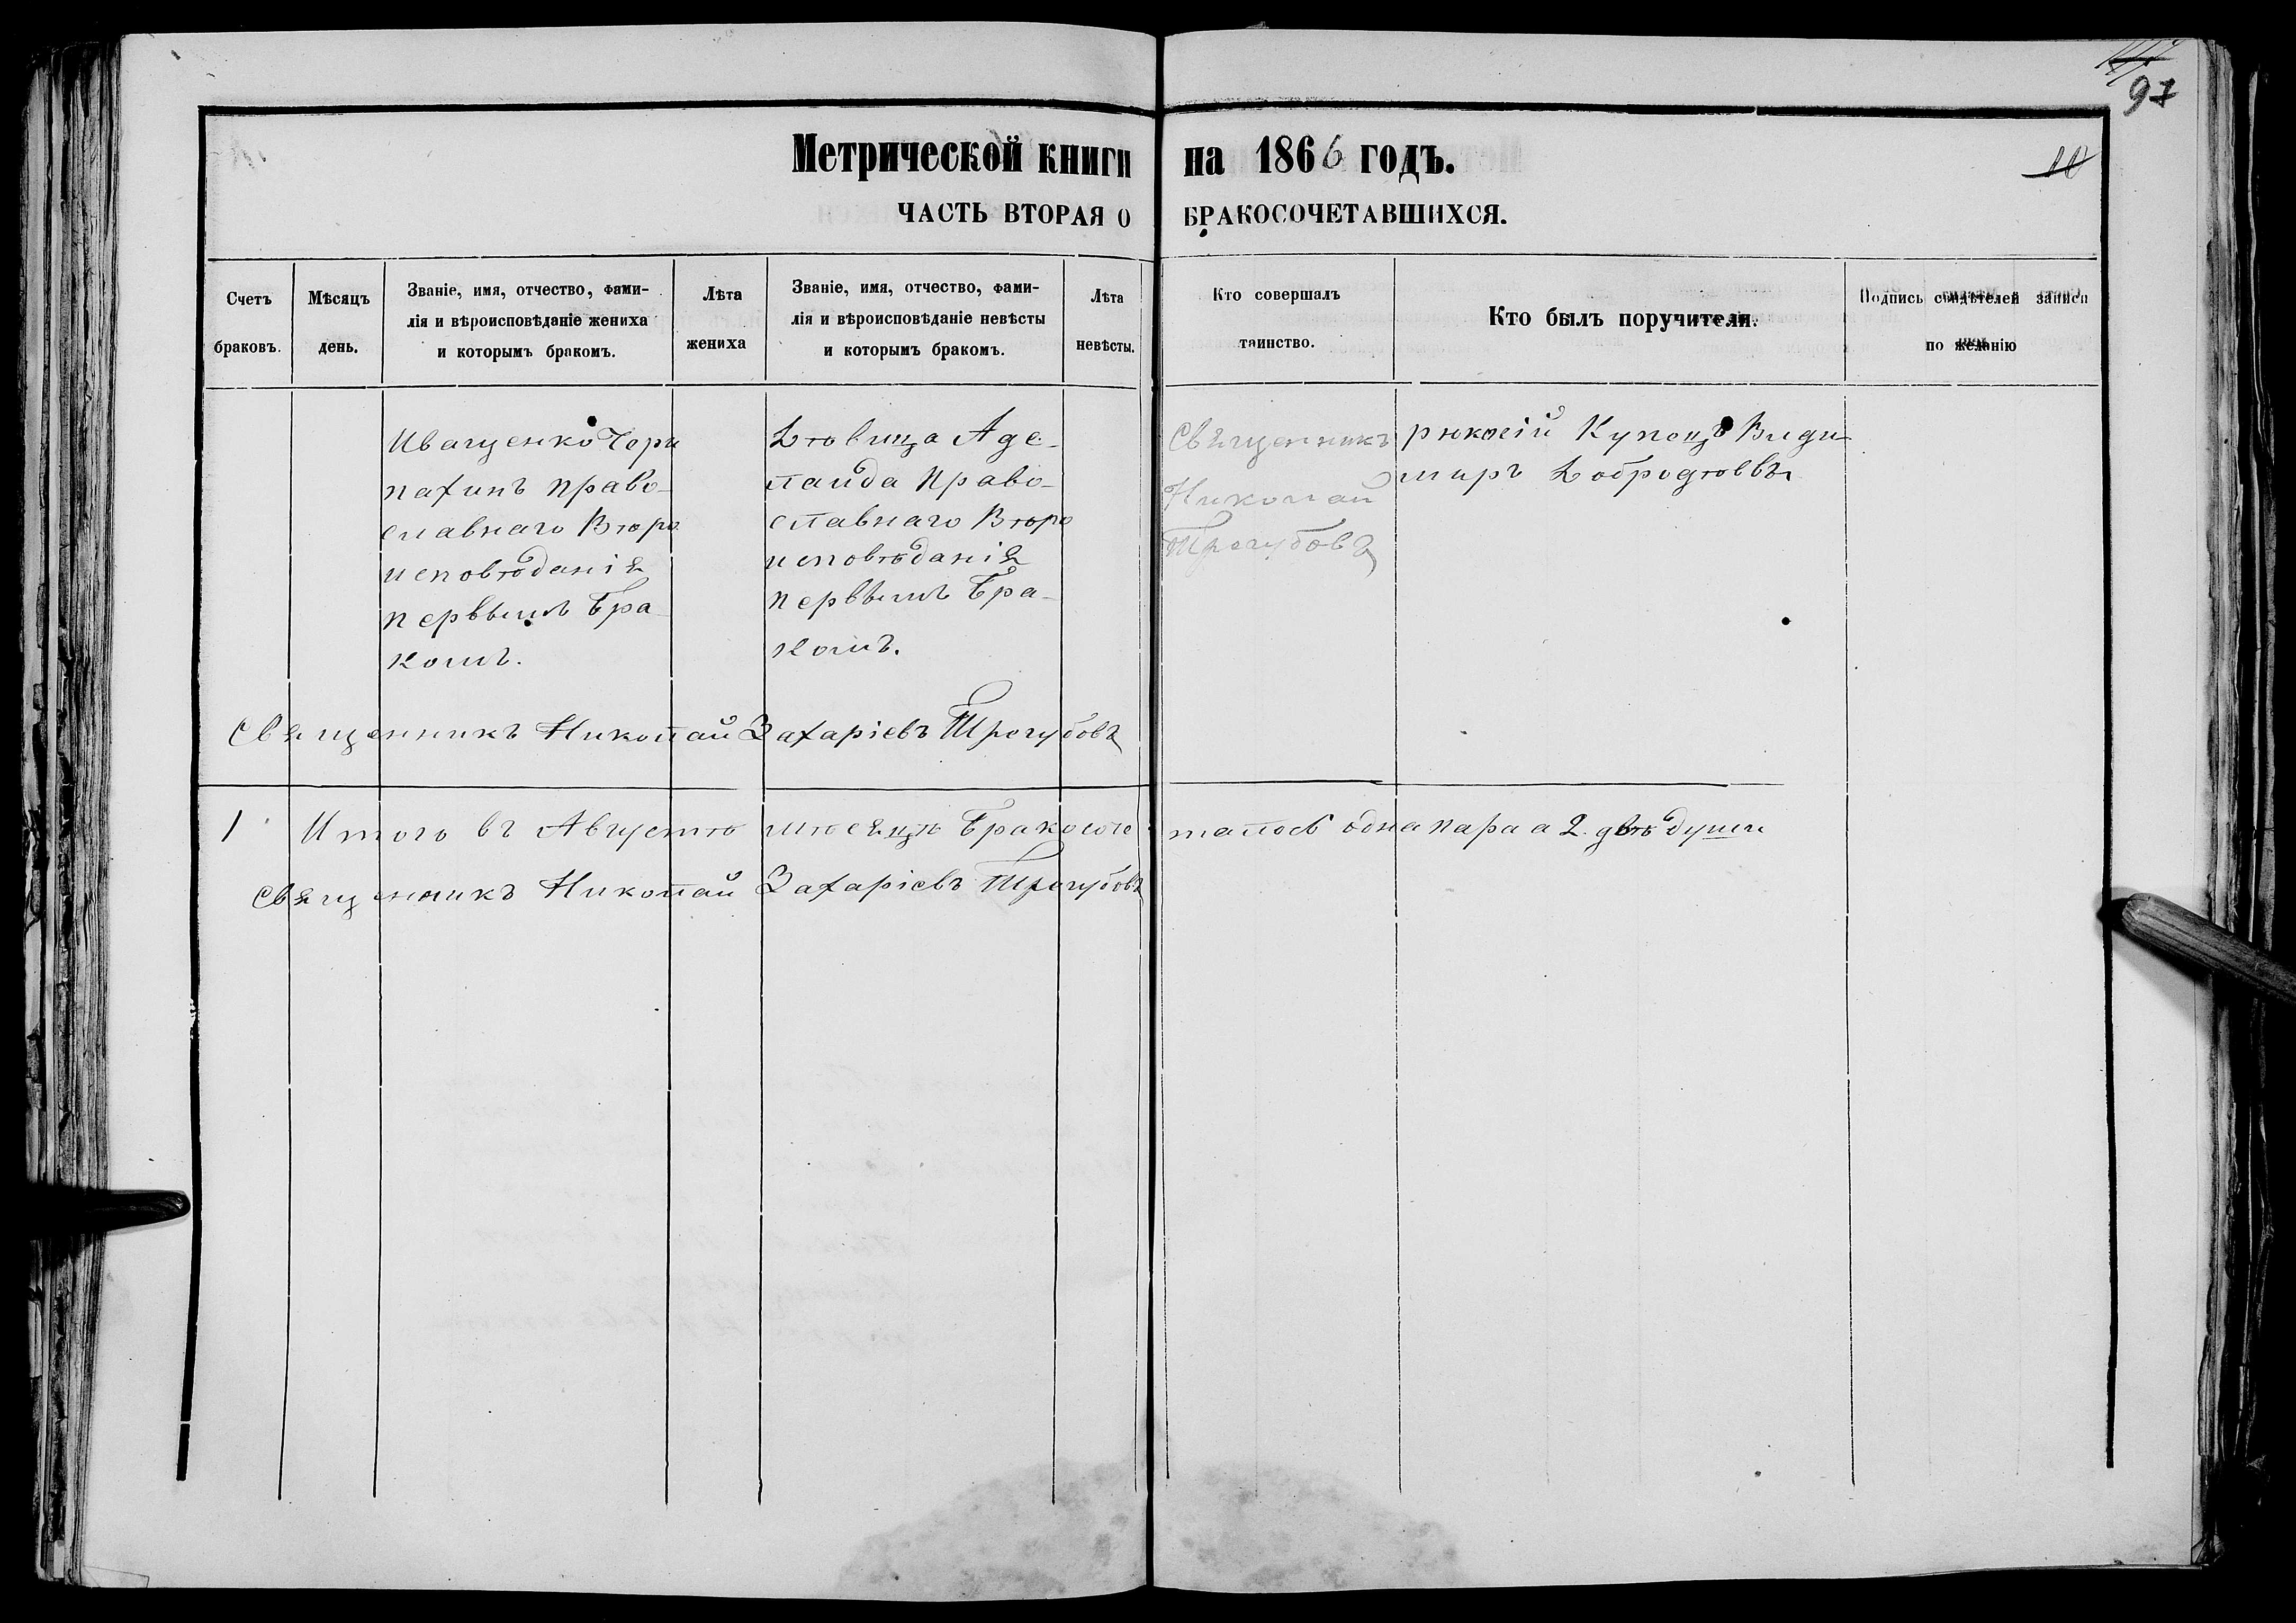 97
Метрической книги на 1866 годъ.
10
ЧАСТЬ ВТОРАЯ О БРАКОСОЧЕТАВШИХСЯ.
Счетъ браковъ.
Мѣсяцъ день.
Званіе, имя, отчество, фами-
лія и вѣроисповѣданіе жениха
и которымъ бракомъ.
Лѣта жениха
Званіе, имя, отчество, фами-
лія и вѣроисповѣданіе невѣсты
и которымъ бракомъ.
Лѣта невѣсты.
Кто совершалъ
таинство.
Кто былъ поручители.
Подпись свидѣтелей записи
по желанію
Иващенко Чери
пахинъ Право-
славнаго Вѣро
исповѣданія
перввымъ Бра
комъ.
Дѣвица Аде-
лаида Право-
славнаго Вѣро
исповѣданія
перввымъ Бра-
комъ.
Священникъ
Николай
Трегубовъ
рюкскій Купецъ Види-
миръ Добродѣеввъ
Священникъ Николай Захаріевъ Трегубовъ
1 Итого въ Августѣ мѣсяцѣ Бракосоче талось одна пара а 2. двѣ души
Священникъ Николай Захаріевъ Трегубовъ